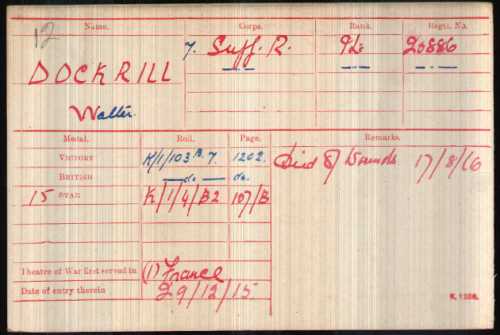 12
Name. Corps. Rank. Regtl. No.
7. Suff. R. Pte. 20886
DOCKRILL -"- -"- -"-
Walter.
Medal. Roll. Page. Remarks.
VICTORY K/1/103 B. 7. 1202. Died of Wounds 17/8/16
BRITISH —do— do.
15 STAR K/1/4/B2 107/B
Theatre of War first served in (1) France
Date of entry therein 29/12/15.
K. 1380.